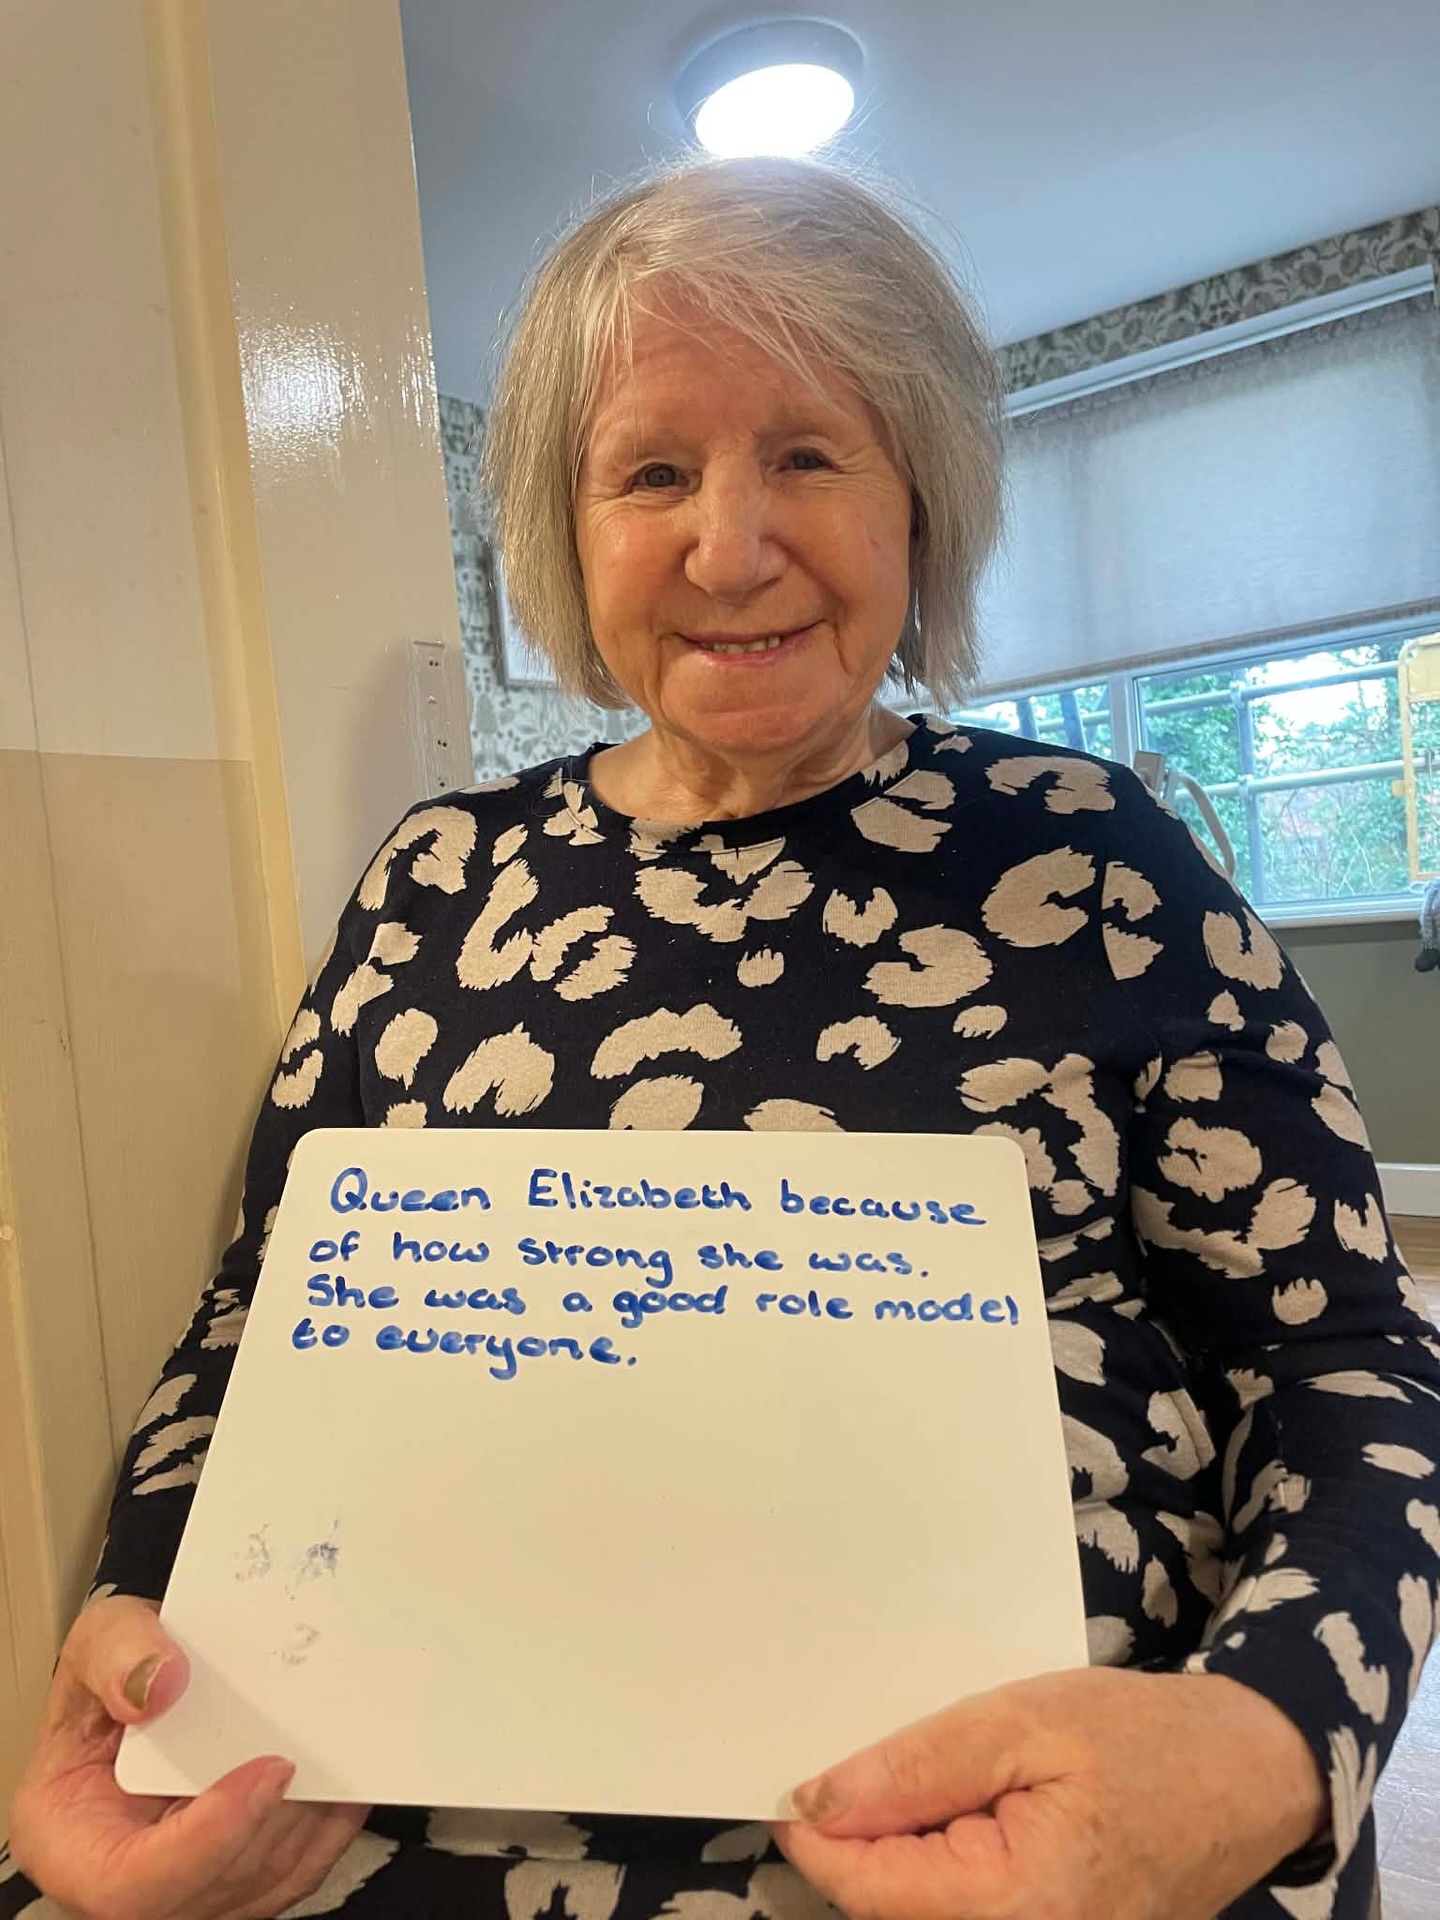 Queen Elizabeth because
of how strong she was.
She was a good role model
to everyone.